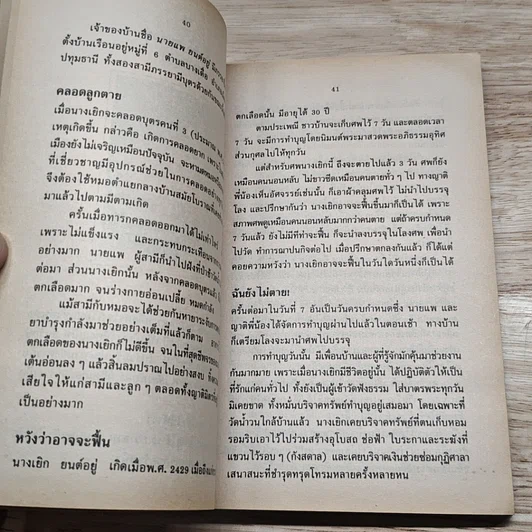 40
เจ้าของบ้านชื่อ นายแพ ยนต์อยู่
ตั้งบ้านเรือนอยู่หมู่ที่ 6 ตำบลบางเดื่อ
ปทุมธานี ทั้งสองสามีภรรยามีบุตรด้วยกัน
คลอดลูกตาย
เมื่อนางเยิกจะคลอดบุตรคนที่ 3
เหตุเกิดขึ้น กล่าวคือ เกิดการคลอดยาก
เมืองยังไม่เจริญเหมือนปัจจุบัน
ที่เชี่ยวชาญมีอุปกรณ์ช่วยในการคลอด
จึงต้องใช้หมอตำแยกลางบ้านสมัยโบราณ
มาแล้วไปตามมีตามเกิด
ครั้นเมื่อทารกคลอดออกมาได้ไม่เท่าไร
เพราะไม่แข็งแรง และกระทบกระเทือน
อย่างมาก นายแพ ผู้สามีก็นำไปฝังที่ป่าช้า
ต่อมา ส่วนนางเยิกนั้น หลังจากคลอดบุตร
ตกเลือดมาก จนร่างกายอ่อนเปลี้ย หมดกำลัง
แม้สามีกับหมอจะได้ช่วยกันหายาระงับ
ยาบำรุงกำลังมาช่วยอย่างเต็มที่แล้วก็ตาม
ตกเลือดของนางเยิกก็ไม่ดีขึ้น จนในที่สุดชีพจร
เต้นอ่อนลง ๆ แล้วสิ้นลมปราณไปอย่างสงบ
เสียใจให้แก่สามีและลูก ๆ ตลอดทั้งญาติมิตร
เป็นอย่างมาก
หวังว่าอาจจะฟื้น
นางเยิก ยนต์อยู่ เกิดเมื่อพ.ศ. 2429
41
ตกเลือดนั้น มีอายุได้ 30 ปี
ตามประเพณี ชาวบ้านจะเก็บศพไว้ 7 วัน และตลอดเวลา
7 วัน จะมีการทำบุญโดยนิมนต์พระมาสวดพระอภิธรรมอุทิศ
ส่วนกุศลไปให้ทุกวัน
แต่สำหรับศพนางเยิกนี้ ถึงจะตายไปแล้ว 3 วัน ศพก็ยัง
เหมือนคนนอนหลับ ไม่ขาวซีดเหมือนคนตายทั่ว ๆ ไป ทางญาติ
พี่น้องเห็นอัศจรรย์เช่นนั้น ก็เอาผ้าคลุมศพไว้ ไม่นำไปบรรจุ
โลง และปรึกษากันว่า นางเยิกอาจจะฟื้นขึ้นมาก็เป็นได้ เพราะ
สภาพศพดูเหมือนคนนอนหลับมากกว่าคนตาย แต่ถ้าครบกำหนด
7 วันแล้ว ยังไม่มีทีท่าจะฟื้น ก็จะนำลงบรรจุในโลงศพ เพื่อนำ
ไปวัด ทำการฌาปนกิจต่อไป เมื่อปรึกษาตกลงกันแล้ว ก็ได้แต่
คอยความหวังว่า นางเยิกอาจจะฟื้นในวันใดวันหนึ่งก็เป็นได้
ฉันยังไม่ตาย!
ครั้นต่อมาในวันที่ 7 อันเป็นวันครบกำหนดซึ่ง นายแพ และ
ญาติพี่น้องได้จัดการทำบุญผ่านไปแล้วในตอนเช้า ทางบ้าน
ก็เตรียมโลงจะมานำศพไปบรรจุ
การทำบุญวันนั้น มีเพื่อนบ้านและผู้ที่รู้จักมักคุ้นมาช่วยงาน
กันมากมาย เพราะเมื่อนางเยิกมีชีวิตอยู่นั้น ได้ปฏิบัติตัวให้เป็น
ที่รักแก่คนทั่วไป ทั้งยังเป็นผู้เข้าวัดฟังธรรม ใส่บาตรพระทุกวัน
มิเคยขาด ทั้งหมั่นบริจาคทรัพย์ทำบุญอยู่เสมอมา โดยเฉพาะที่
วัดน้ำวนใกล้บ้านแล้ว นางเยิกเคยบริจาคทรัพย์ที่ตนเก็บหอม
รอมริบเอาไว้ไปร่วมสร้างอุโบสถ ช่อฟ้า ใบระกาและระฆังที่
แขวนไว้รอบ ๆ (กังสดาล) และเคยบริจาคเงินช่วยซ่อมกุฏิศาลา
เสนาสนะที่ชำรุดทรุดโทรมหลายครั้งหลายหน